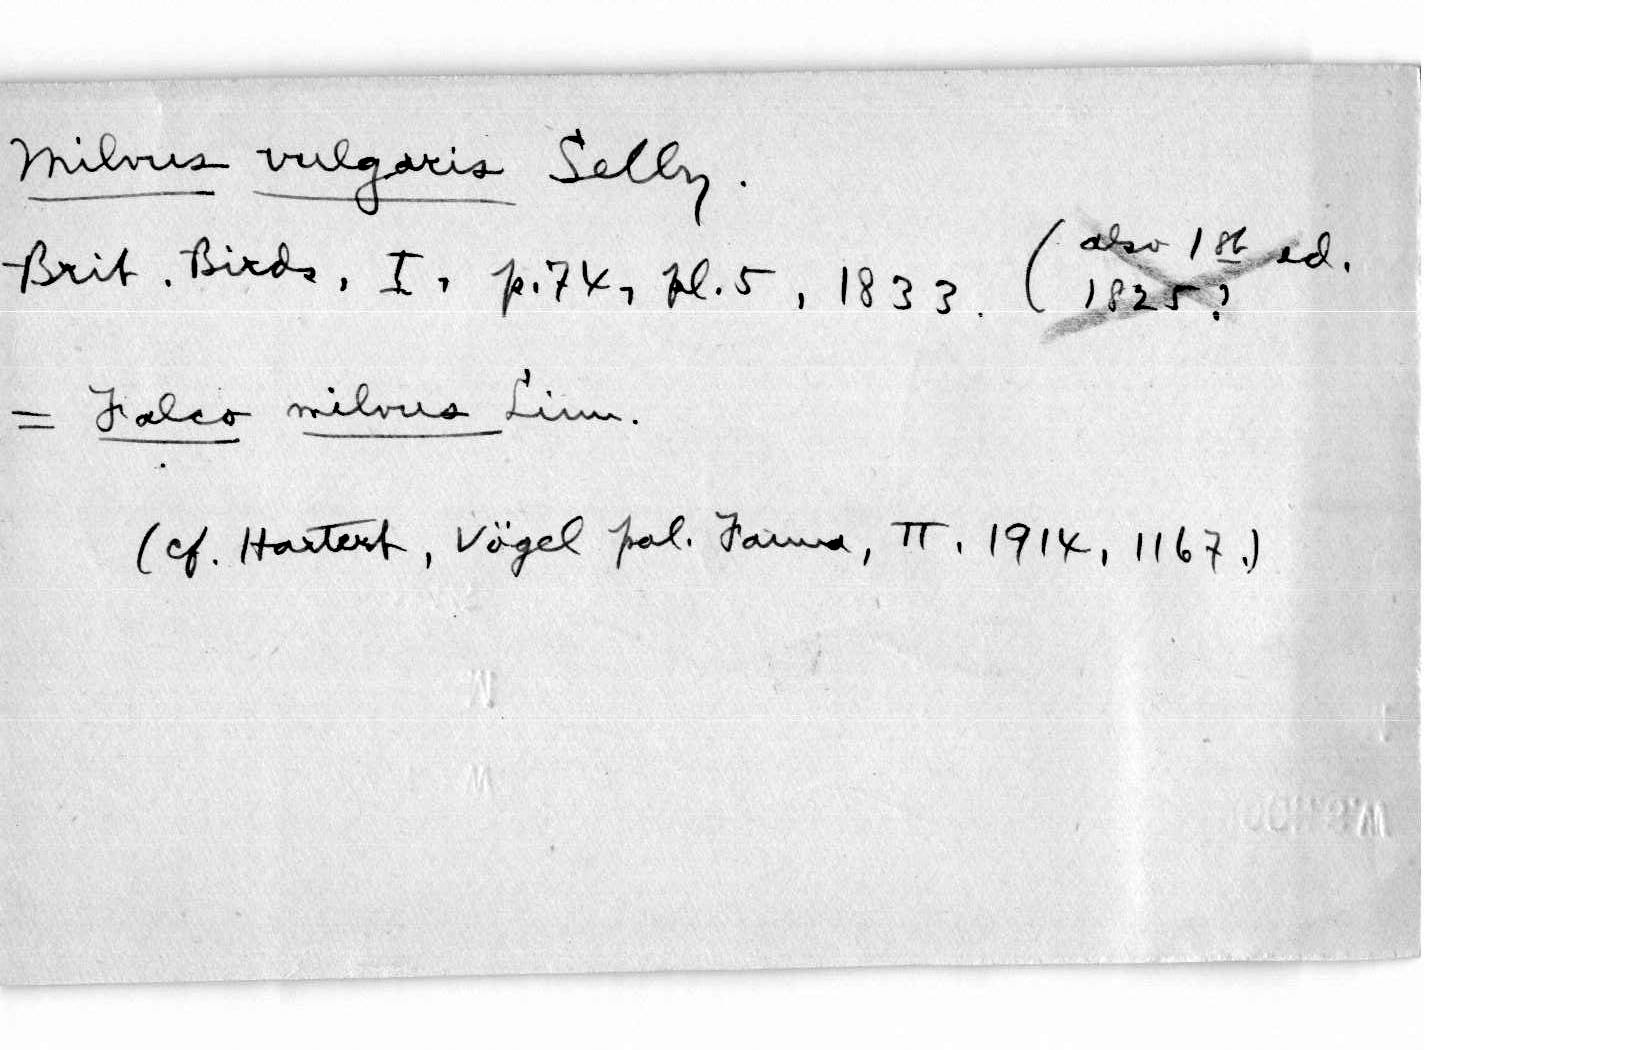 Milvus vulgaris Selby.
Brit. Birds, I, p.74, pl.5, 1833. (also 1st ed.
1825?
= Falco milvus Linn.
(cf. Hartert, Vögel pal. Fauna, II. 1914, 1167.)